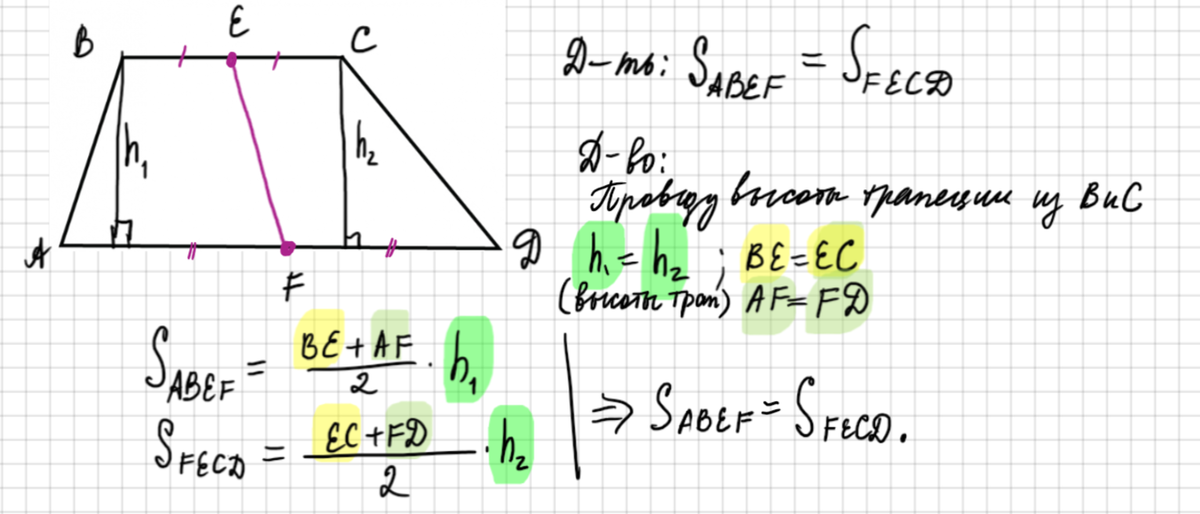 B E C
h₁ h₂
A F D
Д-ть: S_ABEF = S_FECD
Д-во:
Проведу высоты трапеции из В и С
h₁ = h₂ ; BE = EC
(высоты трап) AF = FD
S_ABEF = (BE + AF)/2 · h₁
S_FECD = (EC + FD)/2 · h₂
⇒ S_ABEF = S_FECD.